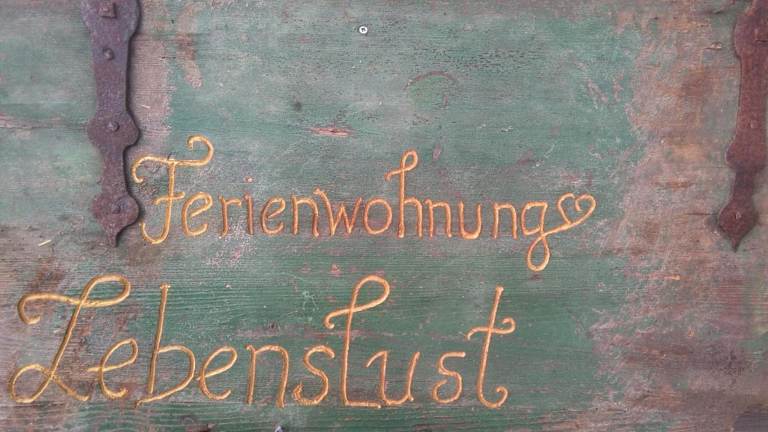 Ferienwohnung
Lebenslust